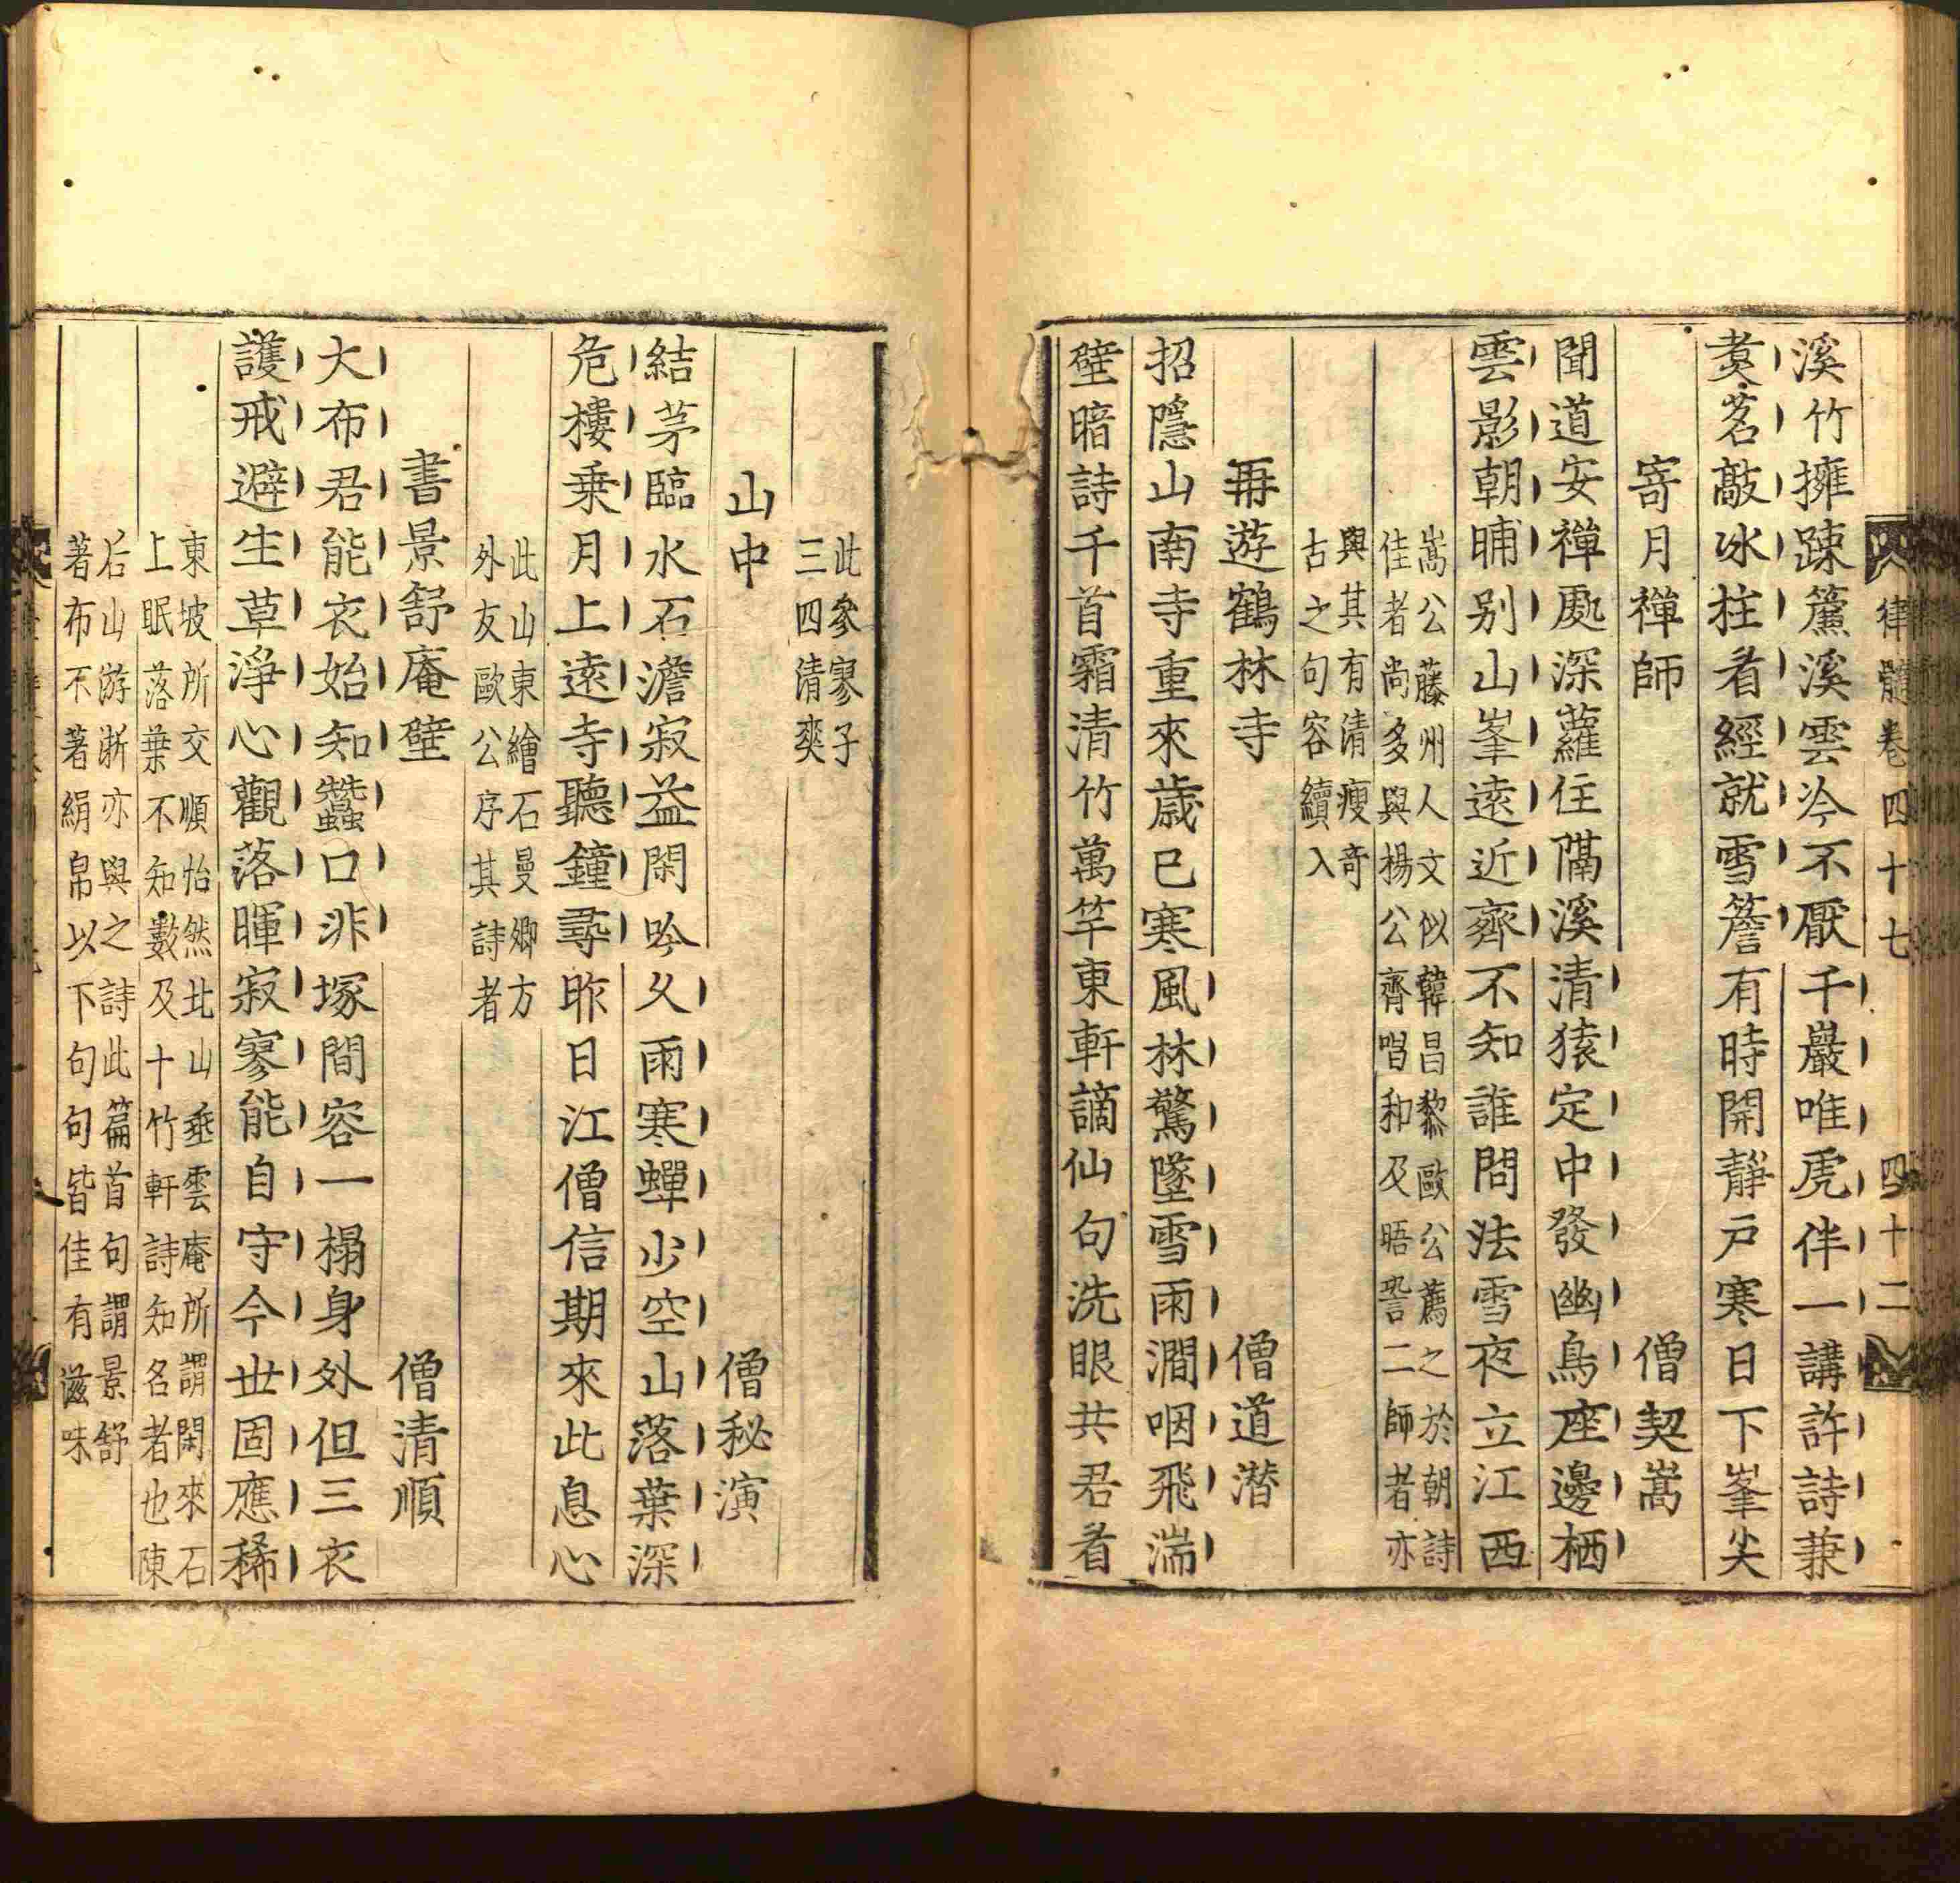 律髓卷四十七　四十二
溪竹擁踈簾溪雲冷不厭千巖唯虎伴一講許詩兼
煑茗敲冰柱看經就雪簷有時開靜户寒日下峯尖
寄月禅師　僧契嵩
聞道安禪處深蘿住隔溪清猿定中發幽鳥座邊栖
雲影朝晡别山峯遠近齊不知誰問法雪夜立江西
嵩公藤州人文似韓昌黎歐公薦之於朝詩
佳者尚多與楊公齊唱和及晤㔶二師者亦
與其有清瘦奇
古之句容續入
再遊鶴林寺　僧道潜
招隱山南寺重來歲已寒風林驚墜雪雨澗咽飛湍
壁暗詩千首霜清竹萬竿東軒謫仙句洗眼共君看
此參寥子
三四清爽
山中　僧秘演
結茅臨水石澹寂益閑吟乆雨寒蟬少空山落葉深
危樓乗月上遠寺聽鐘尋昨日江僧信期來此息心
此山東繪石曼卿方
外友歐公序其詩者
書景舒庵壁　僧清順
大布君能衣始知蠶口非塚間容一榻身外但三衣
護戒避生草淨心觀落暉寂寥能自守今丗固應稀
東坡所交順怡然北山垂雲庵所謂閑來石
上眠落葉不知數及十竹軒詩知名者也陳
后山游浙亦與之詩此篇首句謂景舒
著布不著絹帛以下句句皆佳有滋味